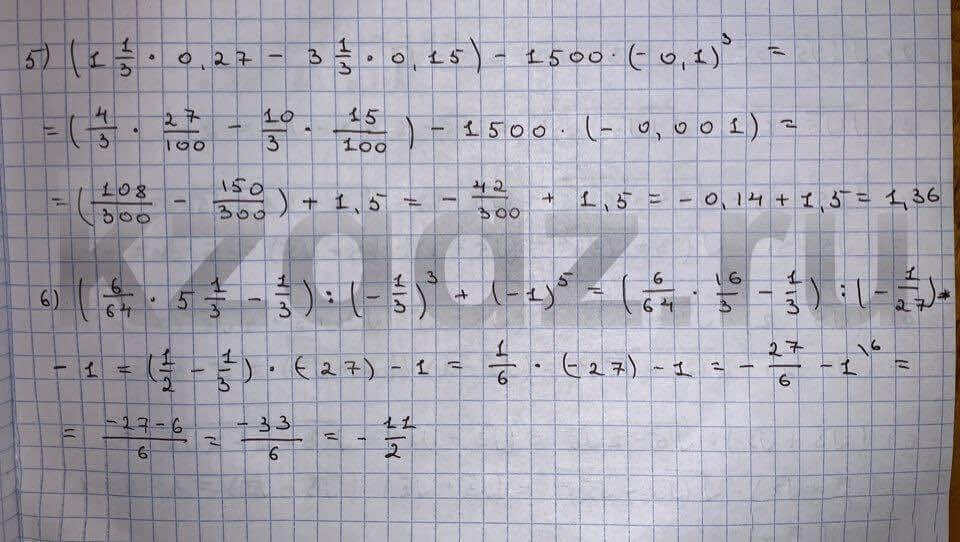 5) (1 1/3 · 0,27 - 3 1/3 · 0,15) - 1500 · (- 0,1)³ =
= (4/3 · 27/100 - 10/3 · 15/100) - 1500 · (- 0,001) =
= (108/300 - 150/300) + 1,5 = - 42/300 + 1,5 = - 0,14 + 1,5 = 1,36
kzgdz.ru
6) (6/64 · 5 1/3 - 1/3) : (- 1/3)³ + (-1)⁵ = (6/64 · 16/3 - 1/3) : (- 1/27) -
- 1 = (1/2 - 1/3) · (-27) - 1 = 1/6 · (-27) - 1 = - 27/6 - 1\⁶ =
= -27-6/6 = -33/6 = - 11/2